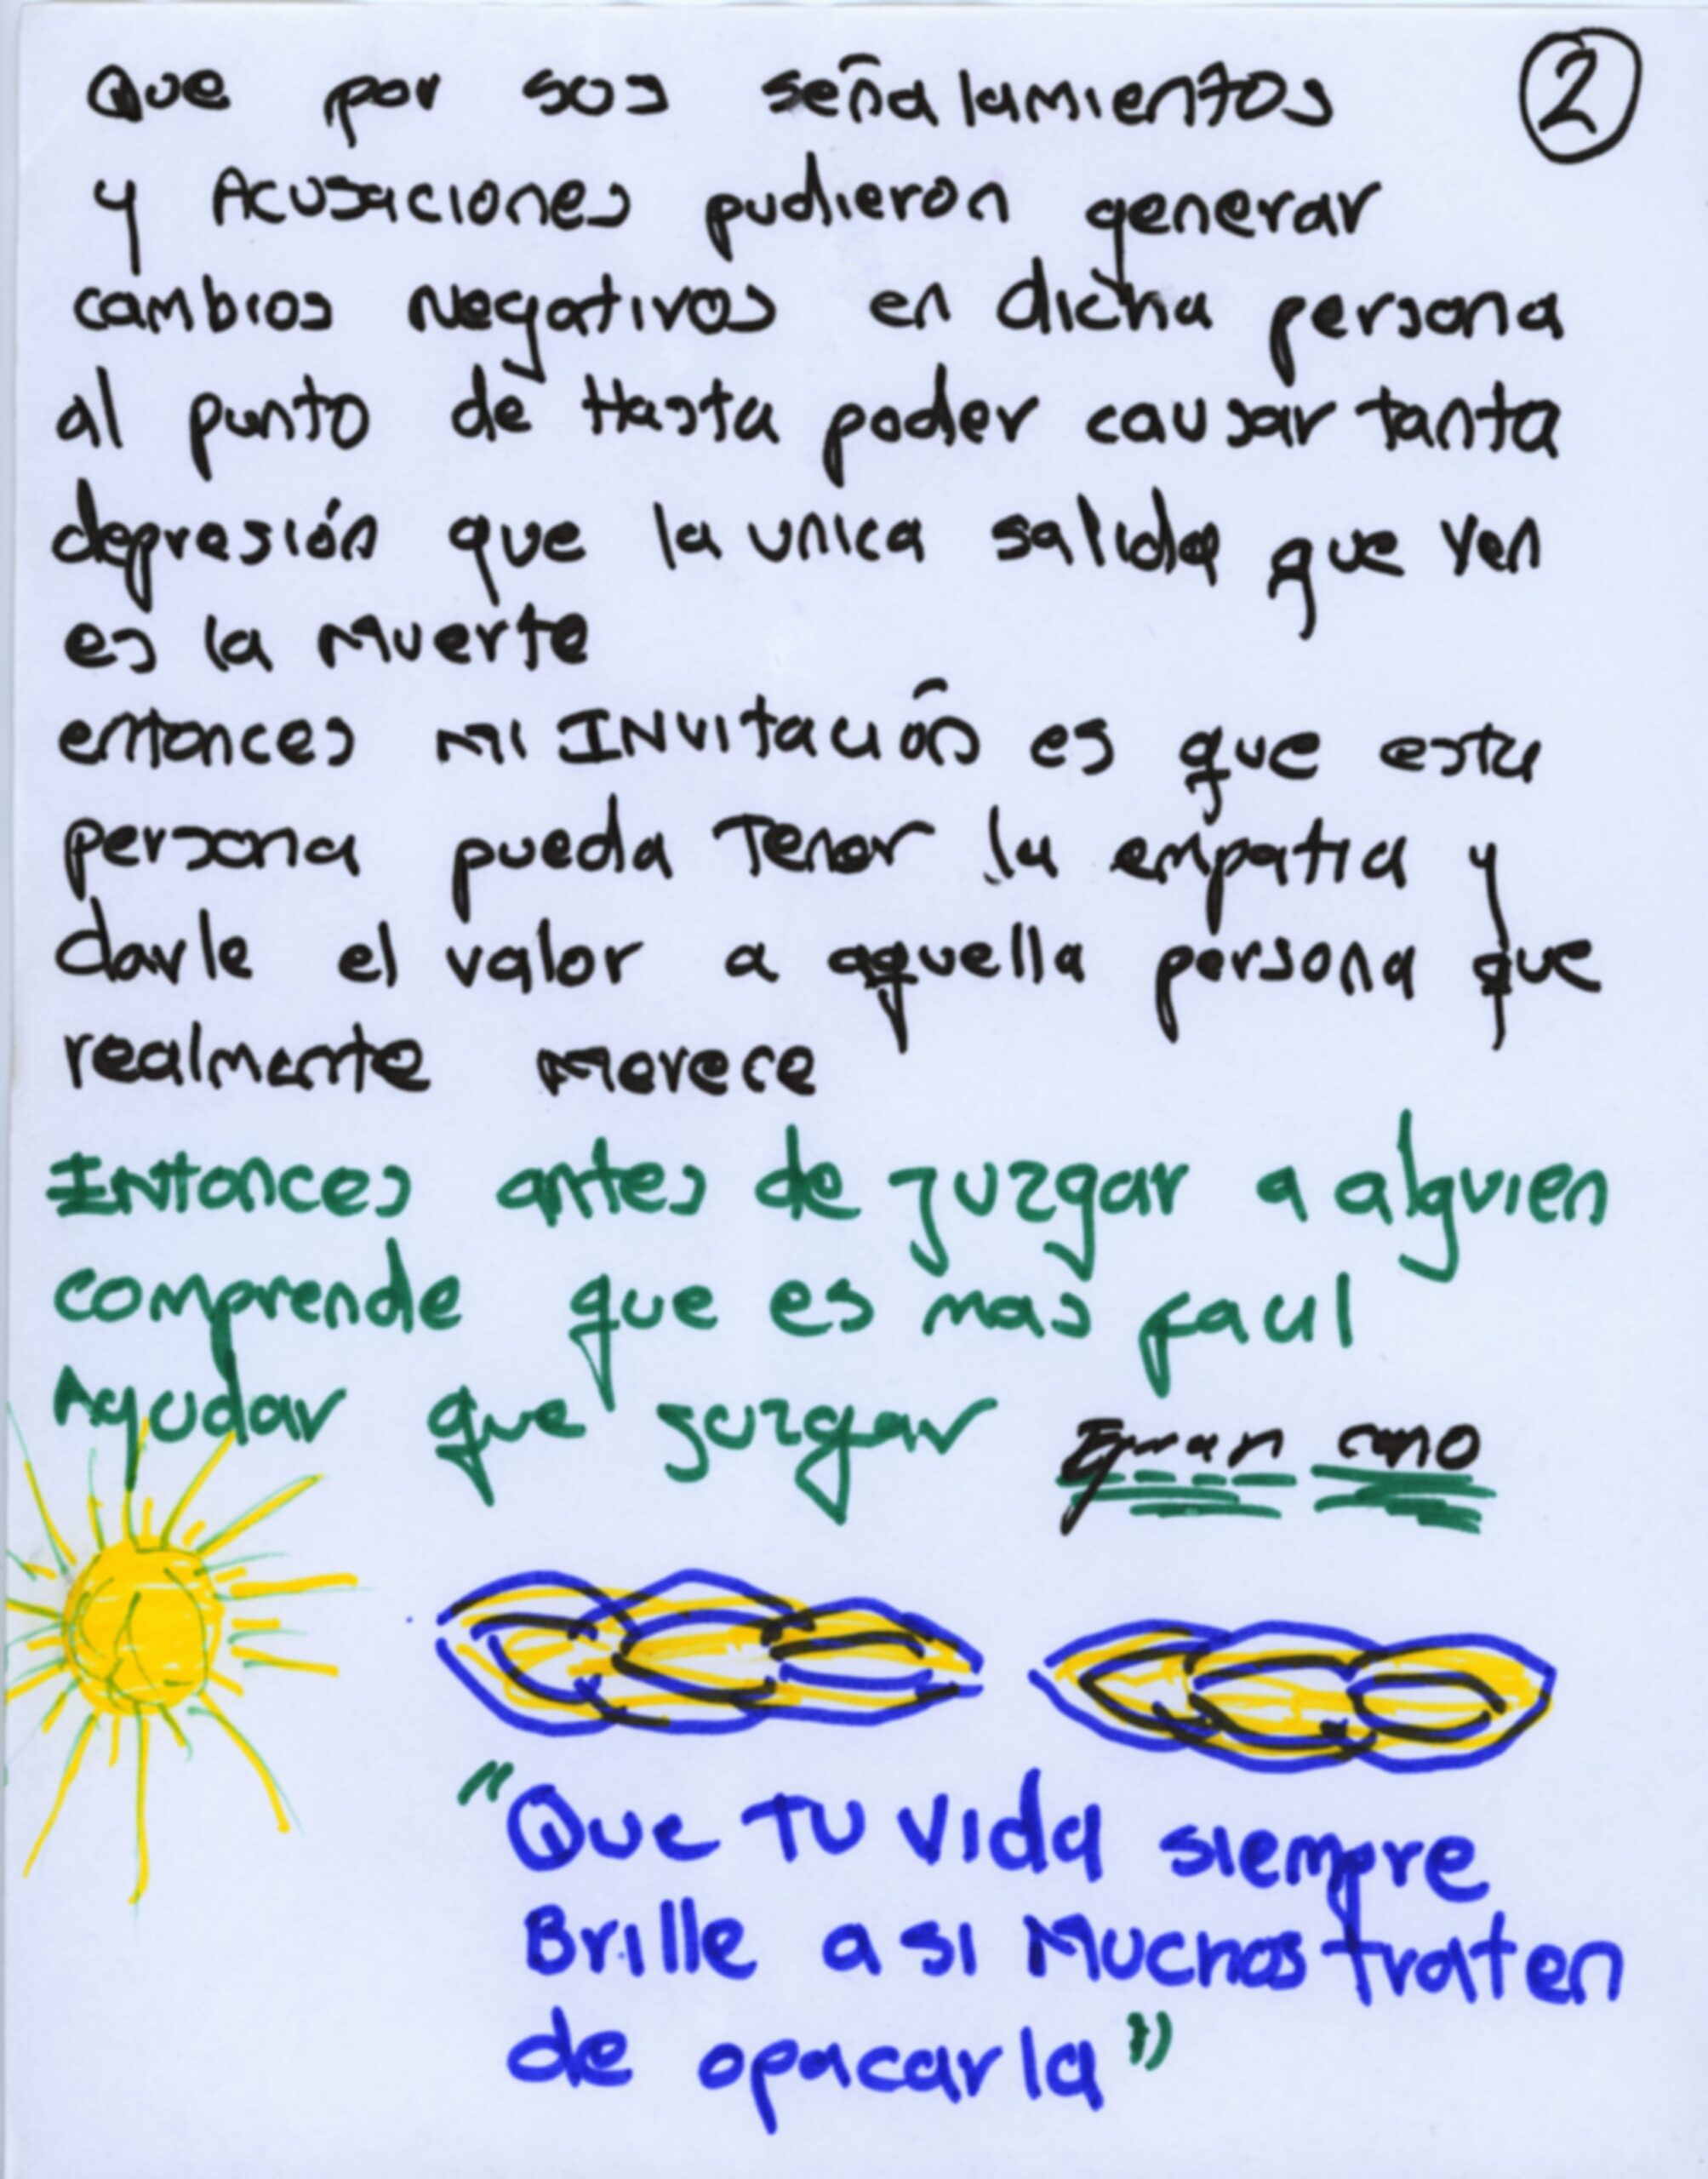 Que por sos señalamientos
2
y Acusaciones pudieron generar
cambios Negativos en dicha persona
al punto de Hasta poder causar tanta
depresión que la unica salida que ven
es la Muerte
entonces mi INvitación es que esta
persona pueda Tener la empatia y
darle el valor a aquella persona que
realmente merece
ENtonces antes de juzgar a alguien
comprende que es mas facil
Ayudar que juzgar
"Que TU Vida siempre
Brille asi Muchos traten
de opacarla"